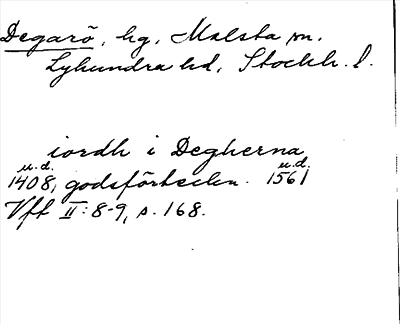 Degarö, hg, Malsta sn.
Lyhundra hd, Stockh. l.
iordh i Degherna
u.d. u.d.
1408, godsförteckn. 1561
Vff II:8-9, s. 168.